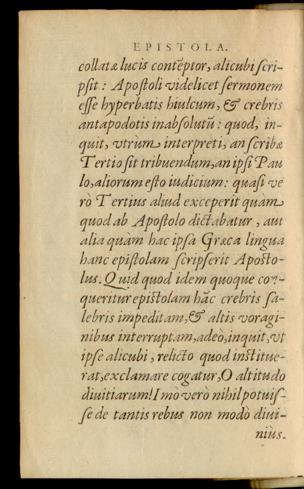 EPISTOLA.
collatæ lucis contẽptor, alicubi scri-
psit : Apostoli videlicet sermonem
esse hyperbatis hiulcum, & crebris
antapodotis inabsolutũ: quod, in-
quit, vtrum interpreti, an scribæ
Tertio sit tribuendum, an ipsi Pau
lo, aliorum esto iudicium: quasi ve
rò Tertius aliud exceperit quam
quod ab Apostolo dictabatur, aut
alia quàm hac ipsa Græca lingua
hanc epistolam scripserit Aposto-
lus. Quid quod idem quoque con-
queritur epistolam hãc crebris sa-
lebris impeditam, & altis voragi-
nibus interruptam, adeò, inquit, vt
ipse alicubi, relicto quod institue-
rat, exclamare cogatur, O altitudo
diuitiarum! Imò verò nihil potuis-
se de tantis rebus non modò diui-
nius.